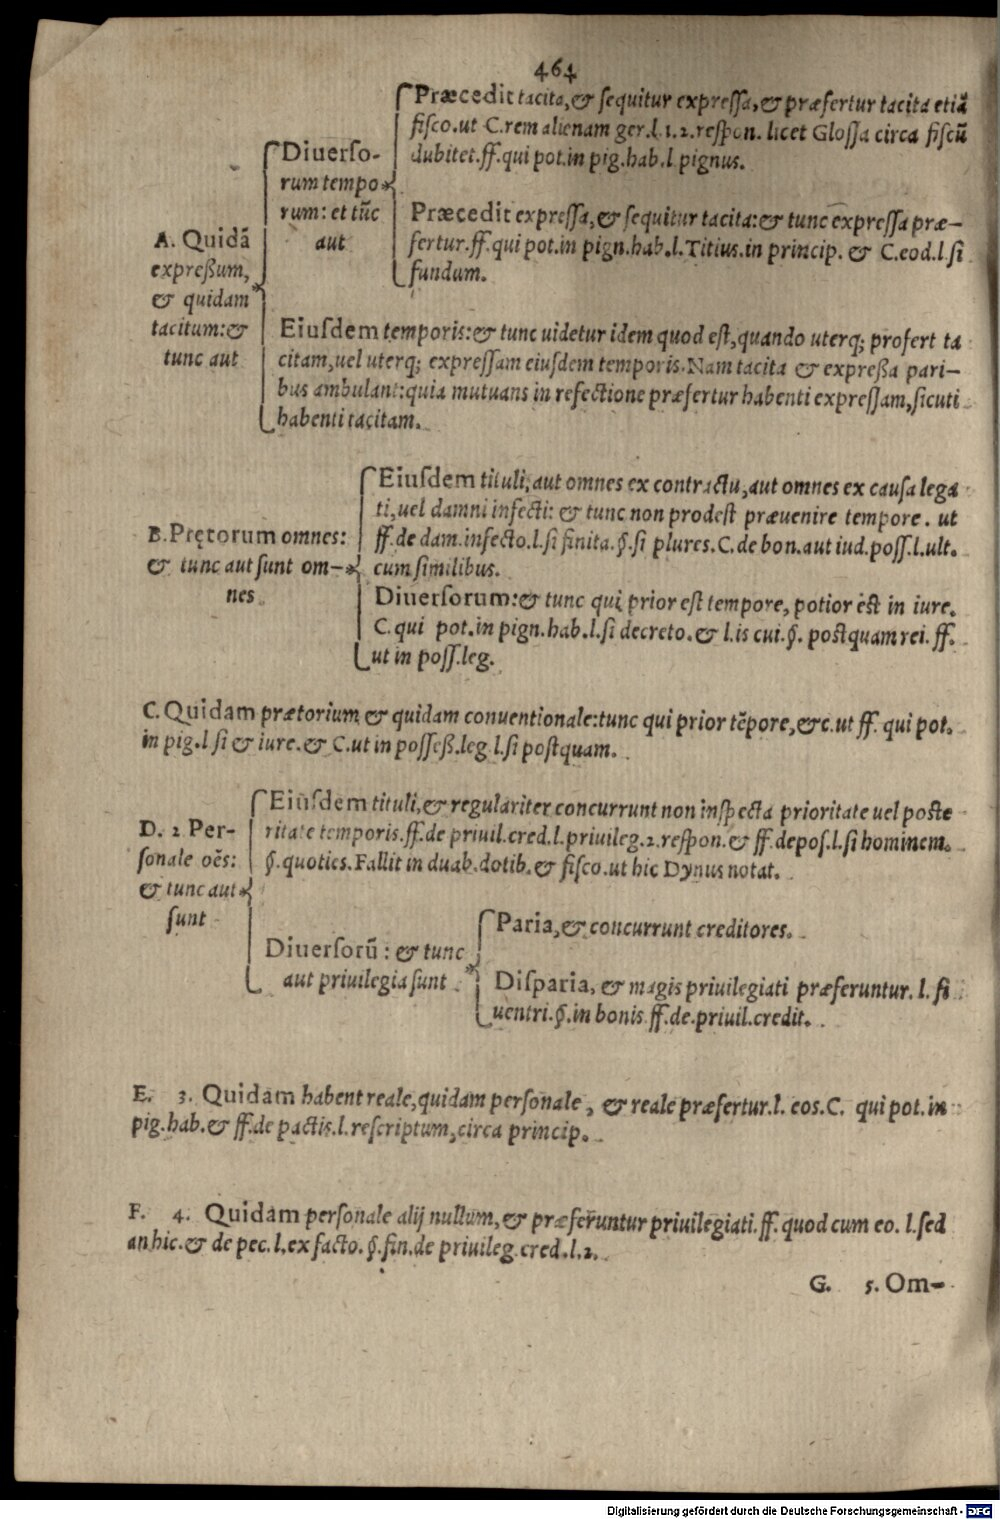 464
Præcedit tacita,& ſequitur expreſſa,& præfertur tacita etiā
fiſco.ut C.rem alienam ger.l.1.2.reſpon. licet Gloſſa circa fiſcū
dubitet.ff.qui pot.in pig.hab.l.pignus.
Diuerſo-
rum tempo
rum: et tūc
aut
Præcedit expreſſa,& ſequitur tacita:& tunc expreſſa præ-
fertur.ff.qui pot.in pign.hab.l.Titius.in princip. & C.eod.l.ſi
fundum.
A. Quidā
expreßum,
& quidam
tacitum:&
tunc aut
Eiuſdem temporis:& tunc uidetur idem quod eſt,quando uterq; profert ta
citam,uel uterq; expreſſam eiuſdem temporis.Nam tacita & expreßa pari-
bus ambulant:quia mutuans in refectione præfertur habenti expreſſam,ſicuti
habenti tacitam.
B.Prętorum omnes:
& tunc aut ſunt om-
nes
Eiuſdem tituli,aut omnes ex contractu,aut omnes ex cauſa lega
ti,uel damni infecti: & tunc non prodeſt præuenire tempore. ut
ff.de dam.infecto.l.ſi finita.§.ſi plures.C.de bon.aut iud.poſſ.l.ult.
cum ſimilibus.
Diuerſorum:& tunc qui prior eſt tempore, potior eſt in iure.
C.qui pot.in pign.hab.l.ſi decreto.& l.is cui.§. poſtquam rei. ff.
ut in poſſ.leg.
C. Quidam prætorium & quidam conuentionale:tunc qui prior tēpore,&c.ut ff. qui pot.
in pig.l ſi & iure.& C.ut in poſſeß.leg.l.ſi poſtquam.
D. 2. Per-
ſonale oēs:
& tunc aut
ſunt
Eiuſdem tituli,& regulariter concurrunt non inſpecta prioritate uel poſte
ritate temporis.ff.de priuil.cred.l.priuileg.2.reſpon.& ff.depoſ.l.ſi hominem.
§.quoties.Fallit in duab.dotib.& fiſco.ut hic Dynus notat.
Diuerſorū: & tunc
aut priuilegia ſunt
Paria,& concurrunt creditores.
Diſparia, & magis priuilegiati præferuntur. l. ſi
uentri.§.in bonis ff.de.priuil.credit.
E. 3. Quidam habent reale,quidam perſonale, & reale præfertur.l. eos.C. qui pot.in
pig.hab.& ff.de pactis.l.reſcriptum,circa princip.
F. 4. Quidam perſonale alij nullum,& præferuntur priuilegiati.ff.quod cum eo. l.ſed
an hic.& de pec.l.ex facto.§.fin.de priuileg.cred.l.2.
G. 5. Om-
Digitalisierung gefördert durch die Deutsche Forschungsgemeinschaft - DFG